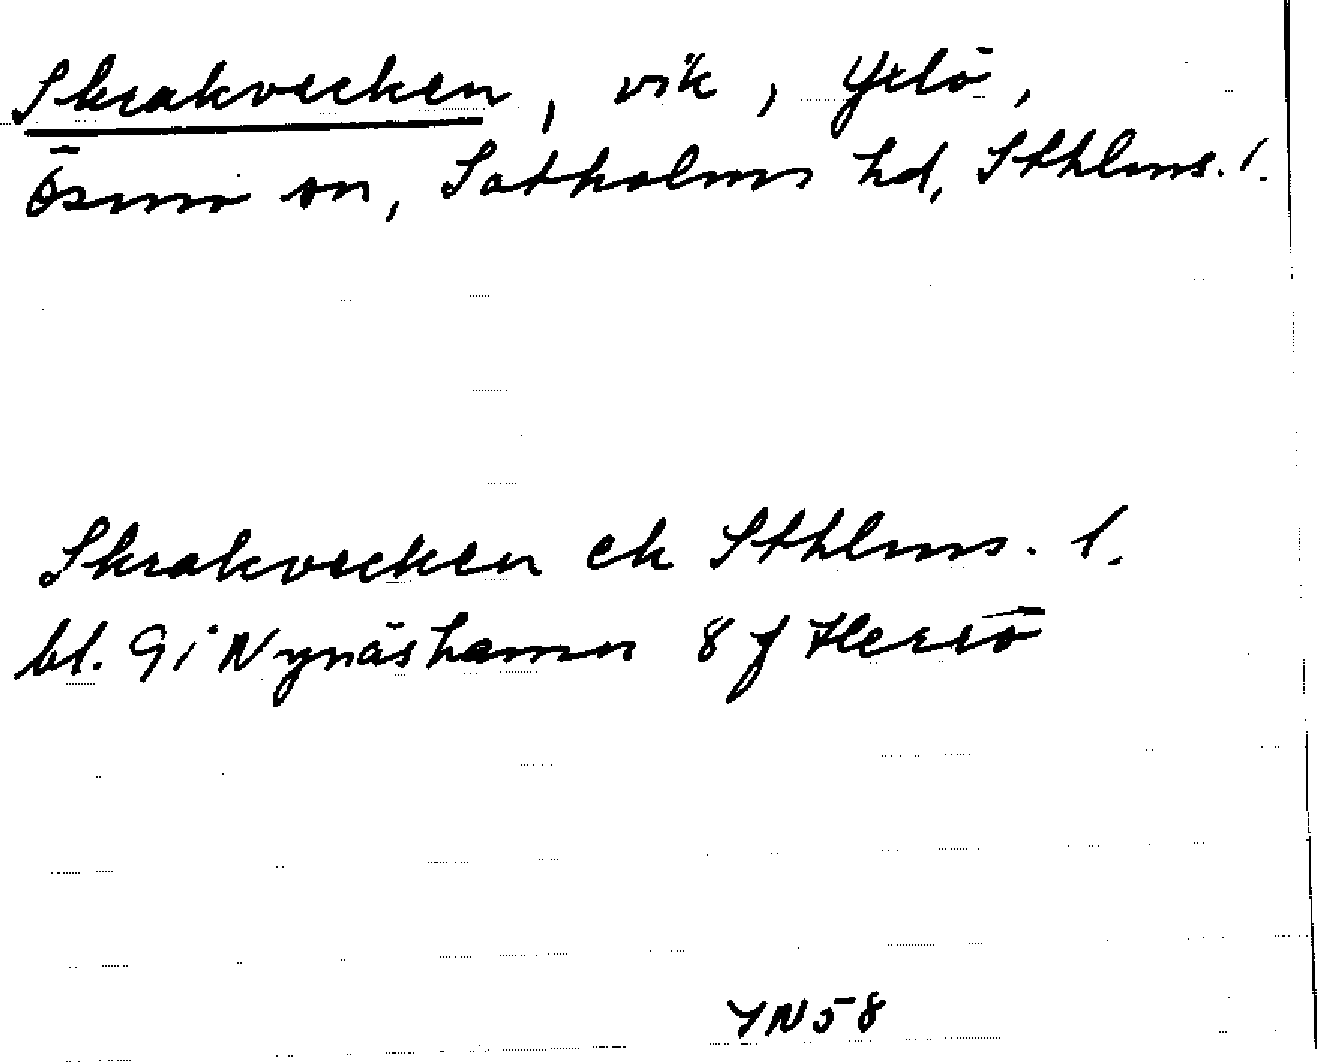 Skrakvecken, vik, Yxlö,
Ösmo sn, Sotholms hd, Sthlms. l.
Skrakvecken ek Sthlms. l.
bl. 9 i Nynäshamn 8 f Herrö
YN58